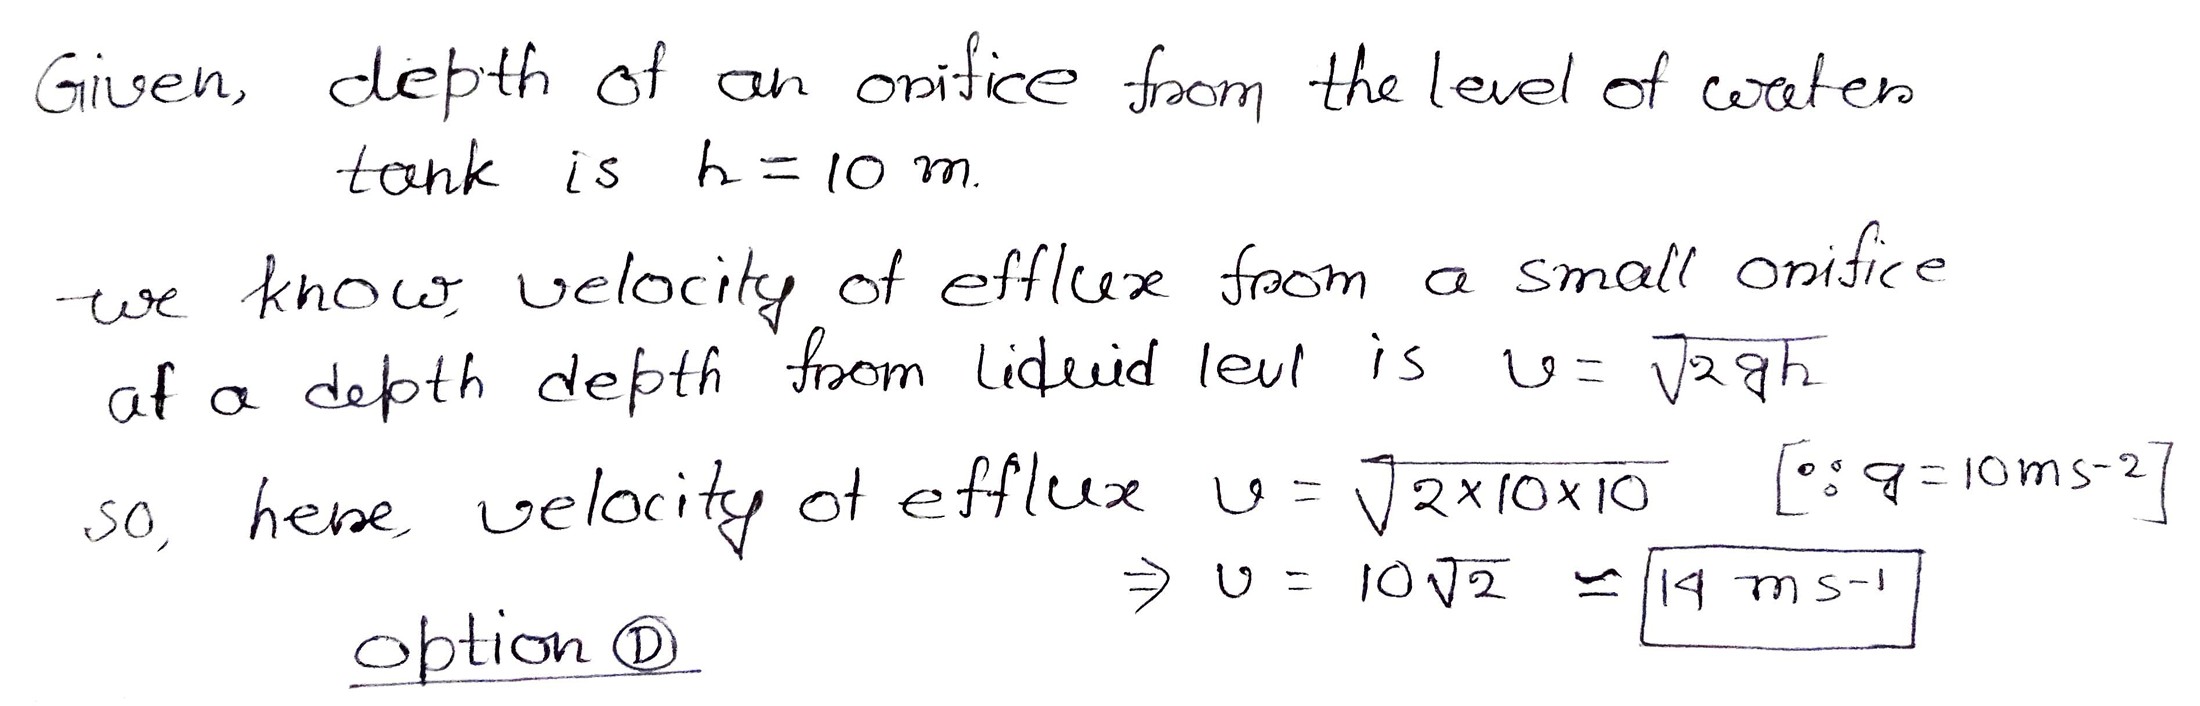 Given, depth of an orifice from the level of water
tank is h = 10 m.
we know, velocity of efflux from a small orifice
at a depth depth from liduid levl is v = √2gh
so, here, velocity of efflux v = √2×10×10 [∵ g = 10ms-2]
⇒ v = 10√2 ≃ 14 ms-1
option Ⓓ